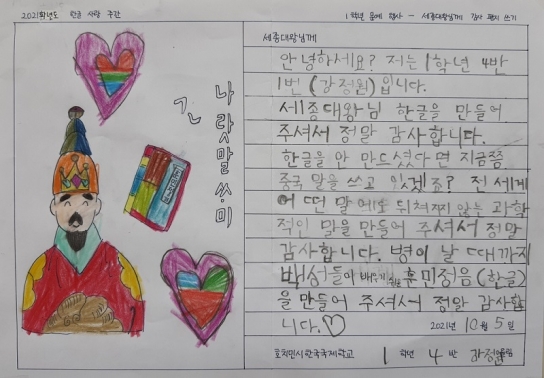 2021학년도 한글 사랑 주간
1학년 문예 행사 - 세종대왕님께 감사 편지 쓰기
나랏말싸미
세종대왕님께
안녕하세요? 저는 1학년 4반
1번 (강정원)입니다.
세종대왕님 한글을 만들어
주셔서 정말 감사합니다.
한글을 안 만드셨다면 지금쯤
중국 말을 쓰고 있겠죠? 전 세계
어떤 말에도 뒤쳐지지 않는 과학
적인 말을 만들어 주셔서 정말
감사합니다. 병이 날 때까지
백성들이 훈민정음(한글)
을 만들어 주셔서 정말 감사합
니다.♡
2021년 10월 5일
호치민시한국국제학교 1 학년 4 반